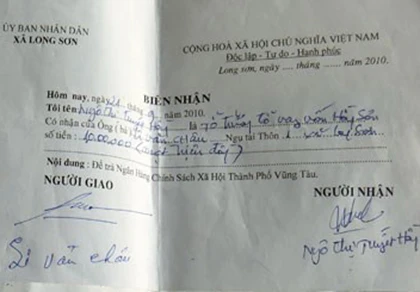 ỦY BAN NHÂN DÂN
XÃ LONG SƠN
CỘNG HOÀ XÃ HỘI CHỦ NGHĨA VIỆT NAM
Độc lập - Tự do - Hạnh phúc
Long sơn, ngày .... tháng ....... năm 2010.
BIÊN NHẬN
Hôm nay, ngày 21 tháng 9 năm 2010.
Tôi tên Ngô Thị Tuyết Hồng là Tổ trưởng tổ vay vốn
Có nhận của Ông (bà) Lê văn châu Ngụ tại Thôn 1 xã Long Sơn
số tiền : 1000.000 (một triệu đồng)
Nội dung : Để trả Ngân Hàng Chính Sách Xã Hội Thành Phố Vũng Tàu.
NGƯỜI GIAO
NGƯỜI NHẬN
văn châu
Ngô Thị Tuyết Hồng